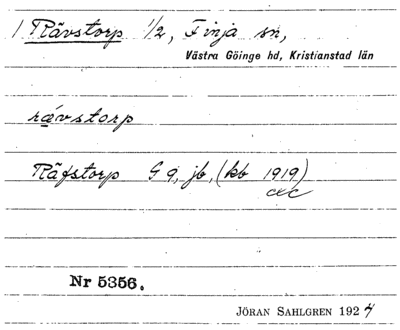 1 Rävstorp 1/2, Finja sn,
Västra Göinge hd, Kristianstad län
rävstorp
Räfstorp G 9, jb, (kb 1919)
Nr 5356.
JÖRAN SAHLGREN 1924